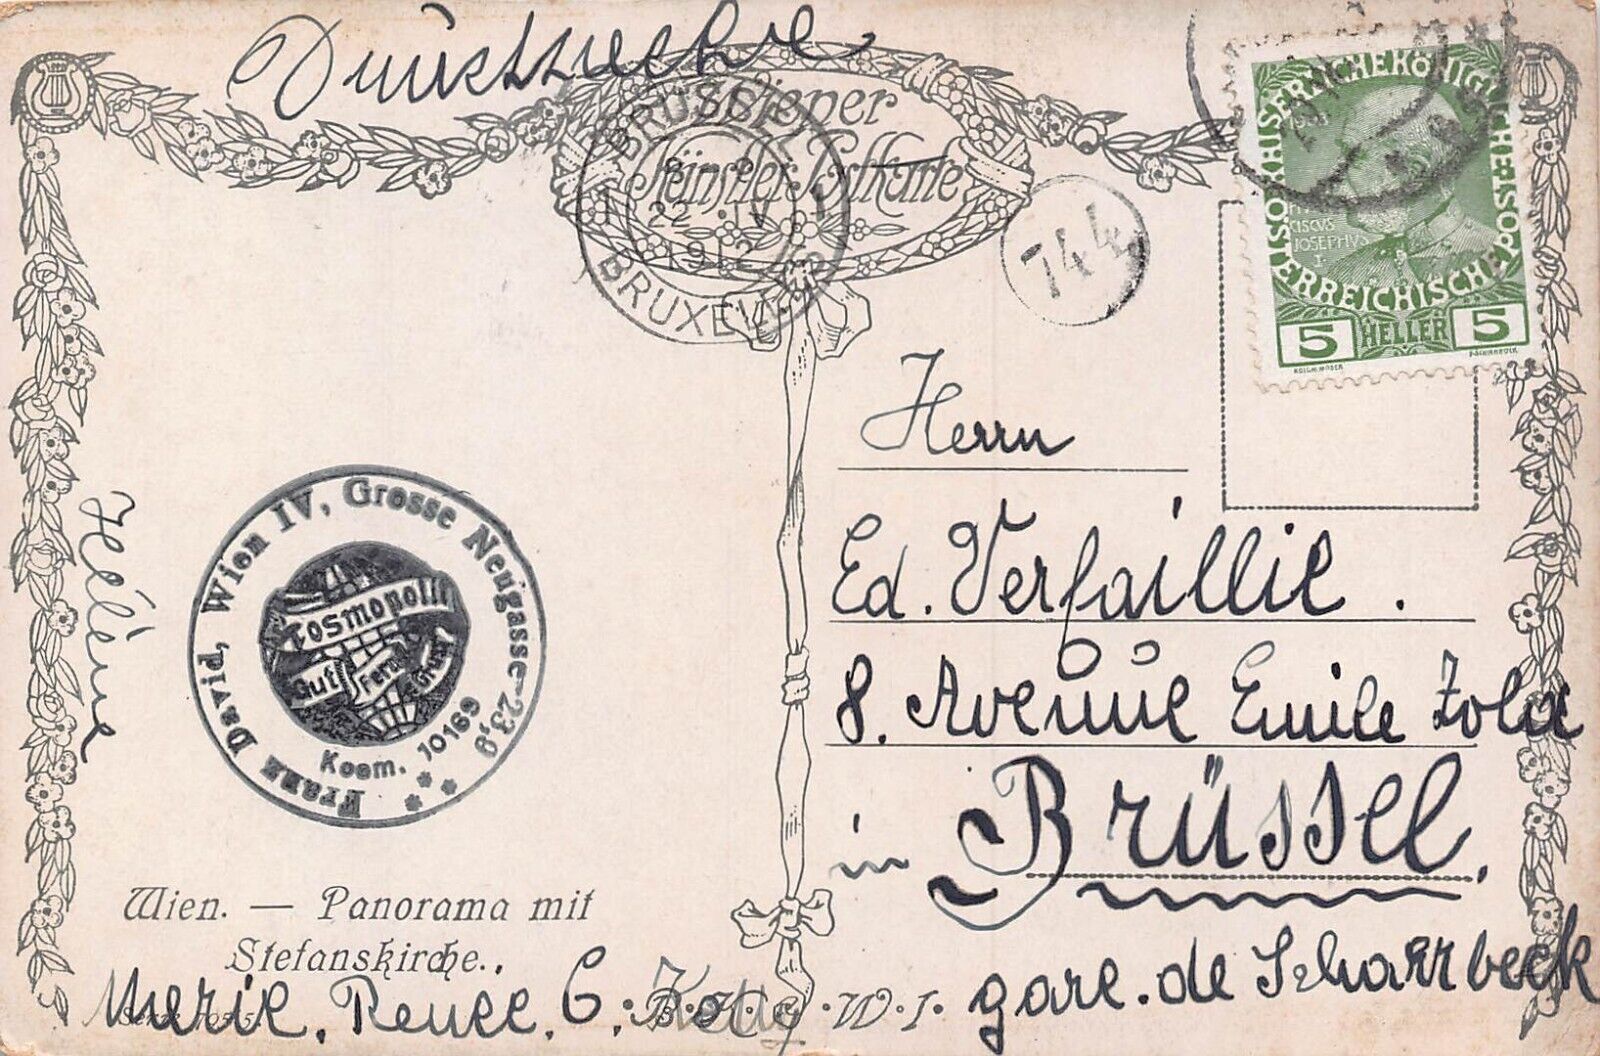 Drucksache
Wiener
Künstler-Postkarte
BRUSSEL 1
8 - 9
22 IV
1912
BRUXELLES
744
KAISERLICHE KÖNIGLICHE ÖSTERREICHISCHE POST
CISCVS
IOSEPHVS
I
5 HELLER 5
KOLO. MOSER
F. SCHIRNBÖCK
Herrn
Ed. Verfaillie.
8. Avenue Emile Zola
in Brüssel.
gare. de Scharrbeck
Franz David, Wien IV, Grosse Neugasse 23,9
Kosmopolit
Gut Fern Gruss
Kosm. 10169
Hélène
Wien. — Panorama mit
Stefanskirche.
Marie. Renee. C.
B.K.W.I.
Serie 195-5.